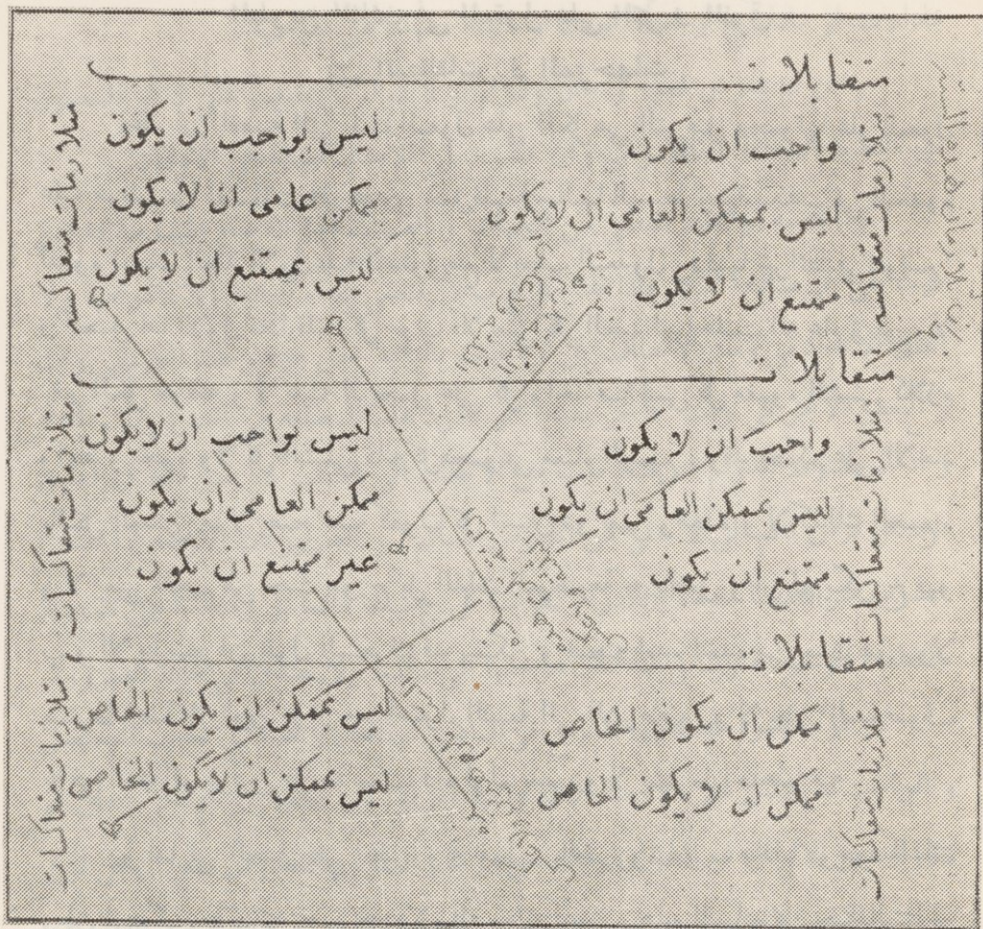 متقابلات
واجب ان يكون
ليس بممكن العامى ان لايكون
ممتنع ان لا يكون
ليس بواجب ان يكون
ممكن عامى ان لا يكون
ليس بممتنع ان لا يكون
متلازمات متعاكسه
متلازمات متعاكسه
متقابلات
واجب ان لا يكون
ليس بممكن العامى ان يكون
ممتنع ان يكون
ليس بواجب ان لايكون
ممكن العامى ان يكون
غير ممتنع ان يكون
متلازمات متعاكسات
متلازمات متعاكسات
متقابلات
ممكن ان يكون الخاص
ممكن ان لا يكون الخاص
ليس بممكن ان يكون الخاص
ليس بممكن ان لايكون الخاص
متلازمات متعاكسات
متلازمات متعاكسات
هذه الستة